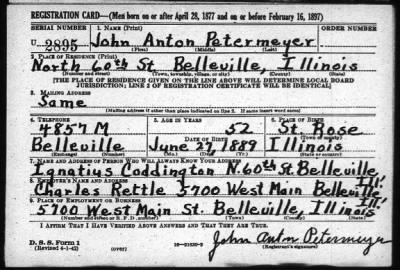 REGISTRATION CARD—(Men born on or after April 28, 1877 and on or before February 16, 1897)
SERIAL NUMBER 1. NAME (Print) ORDER NUMBER
U 2895 John Anton Petermeyer
(First) (Middle) (Last)
2. PLACE OF RESIDENCE (Print)
North 60th St. Belleville, Illinois
(Number and street) (Town, township, village, or city) (County) (State)
[THE PLACE OF RESIDENCE GIVEN ON THE LINE ABOVE WILL DETERMINE LOCAL BOARD
JURISDICTION; LINE 2 OF REGISTRATION CERTIFICATE WILL BE IDENTICAL]
3. MAILING ADDRESS
Same
(Mailing address if other than place indicated on line 2. If same insert word same)
4. TELEPHONE 5. AGE IN YEARS 6. PLACE OF BIRTH
4857 M 52 St. Rose
DATE OF BIRTH (Town or county)
Belleville June 27, 1889 Illinois
(Exchange) (Number) (Mo.) (Day) (Yr.) (State or country)
7. NAME AND ADDRESS OF PERSON WHO WILL ALWAYS KNOW YOUR ADDRESS
Ignatius Coddington N. 60th St. Belleville, Ill.
8. EMPLOYER'S NAME AND ADDRESS
Charles Rettle 5700 West Main Belleville Ill.
9. PLACE OF EMPLOYMENT OR BUSINESS
5700 West Main St. Belleville, Illinois
(Number and street or R. F. D. number) (Town) (County) (State)
I AFFIRM THAT I HAVE VERIFIED ABOVE ANSWERS AND THAT THEY ARE TRUE.
D. S. S. Form 1
(Revised 4-1-42) (over) John Anton Petermeyer
(Registrant's signature)